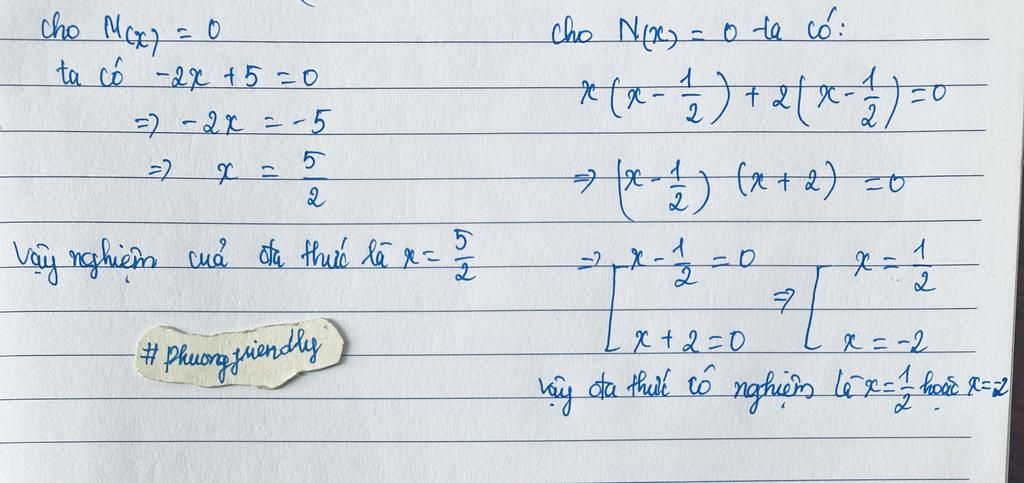 cho M(x) = 0
ta có -2x + 5 = 0
=> -2x = -5
=> x = 5/2
Vậy nghiệm cuả đa thức là x = 5/2
#phuongfriendly
cho N(x) = 0 ta có:
x(x - 1/2) + 2(x - 1/2) = 0
=> (x - 1/2) (x + 2) = 0
=> [ x - 1/2 = 0 => [ x = 1/2
x + 2 = 0 x = -2
Vậy đa thức có nghiệm là x = 1/2 hoặc x = -2